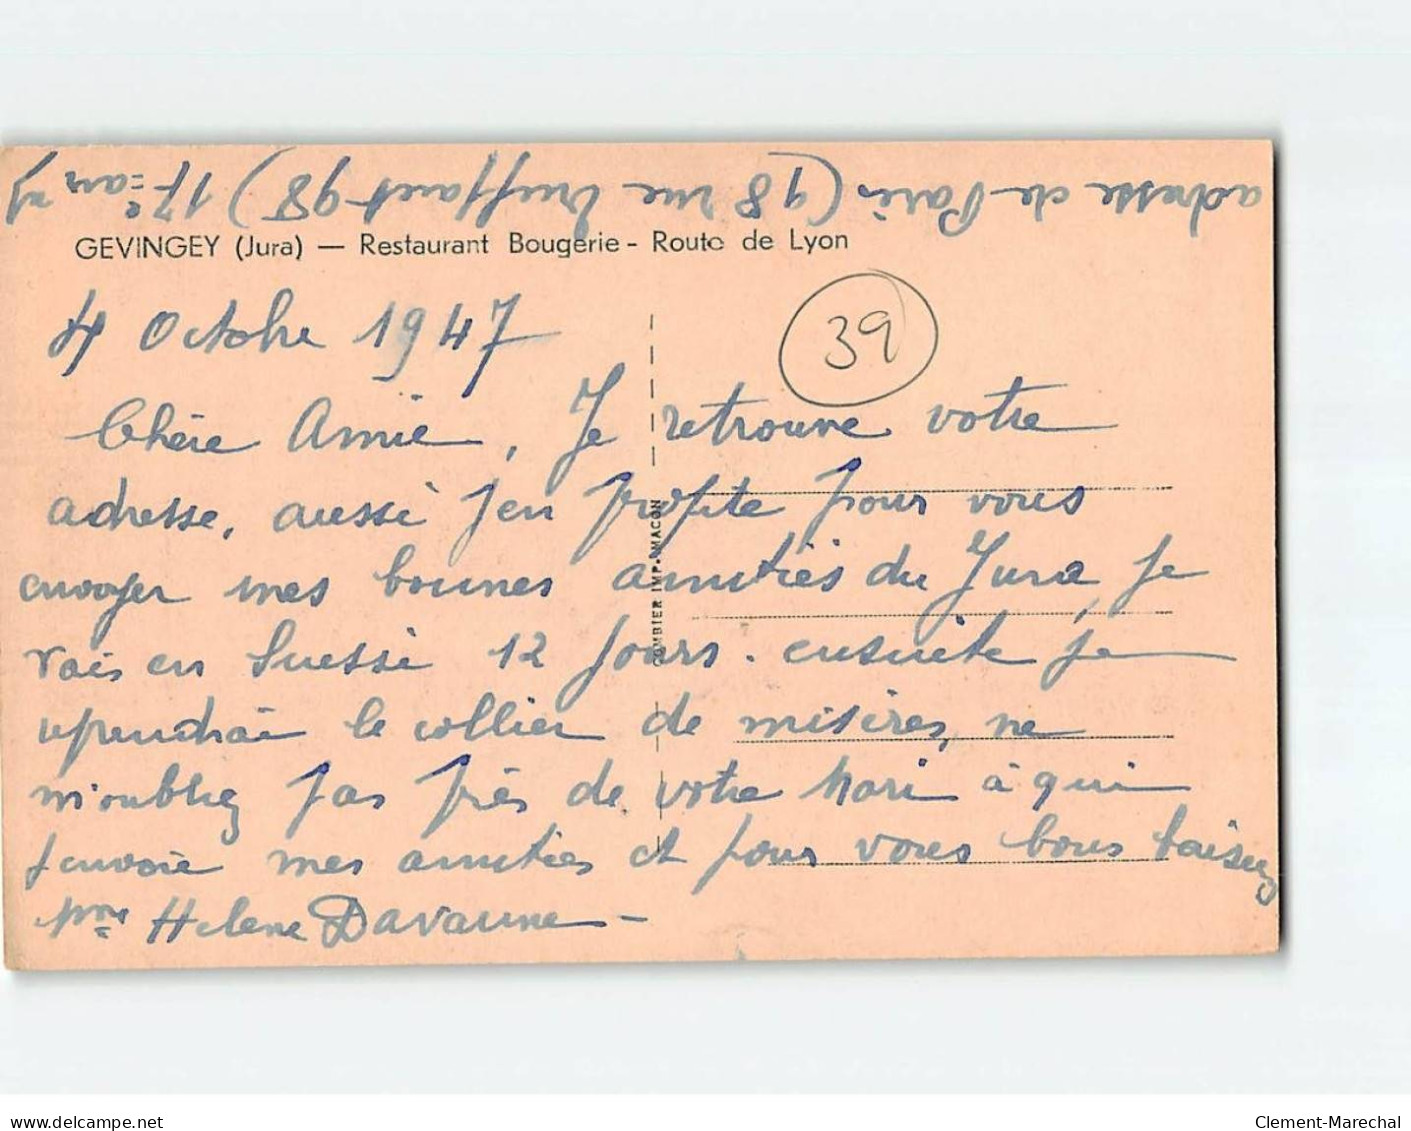 adresse de Paris (98 rue Truffaut 98) 17e arr
GEVINGEY (Jura) — Restaurant Bougerie - Route de Lyon
39
4 Octobre 1947
Chère Amie, Je retrouve votre
adresse, aussi j'en profite pour vous
envoyer mes bonnes amitiés du Jura, je
vais en Suisse 12 jours. ensuite je
reprendrai le collier de misères, ne
m'oubliez pas près de votre Mari à qui
j'envoie mes amitiés et pour vous bons baisers
Mme Helene Davanne -
COMBIER IMP. MACON
delcampe.net
Clement-Marechal